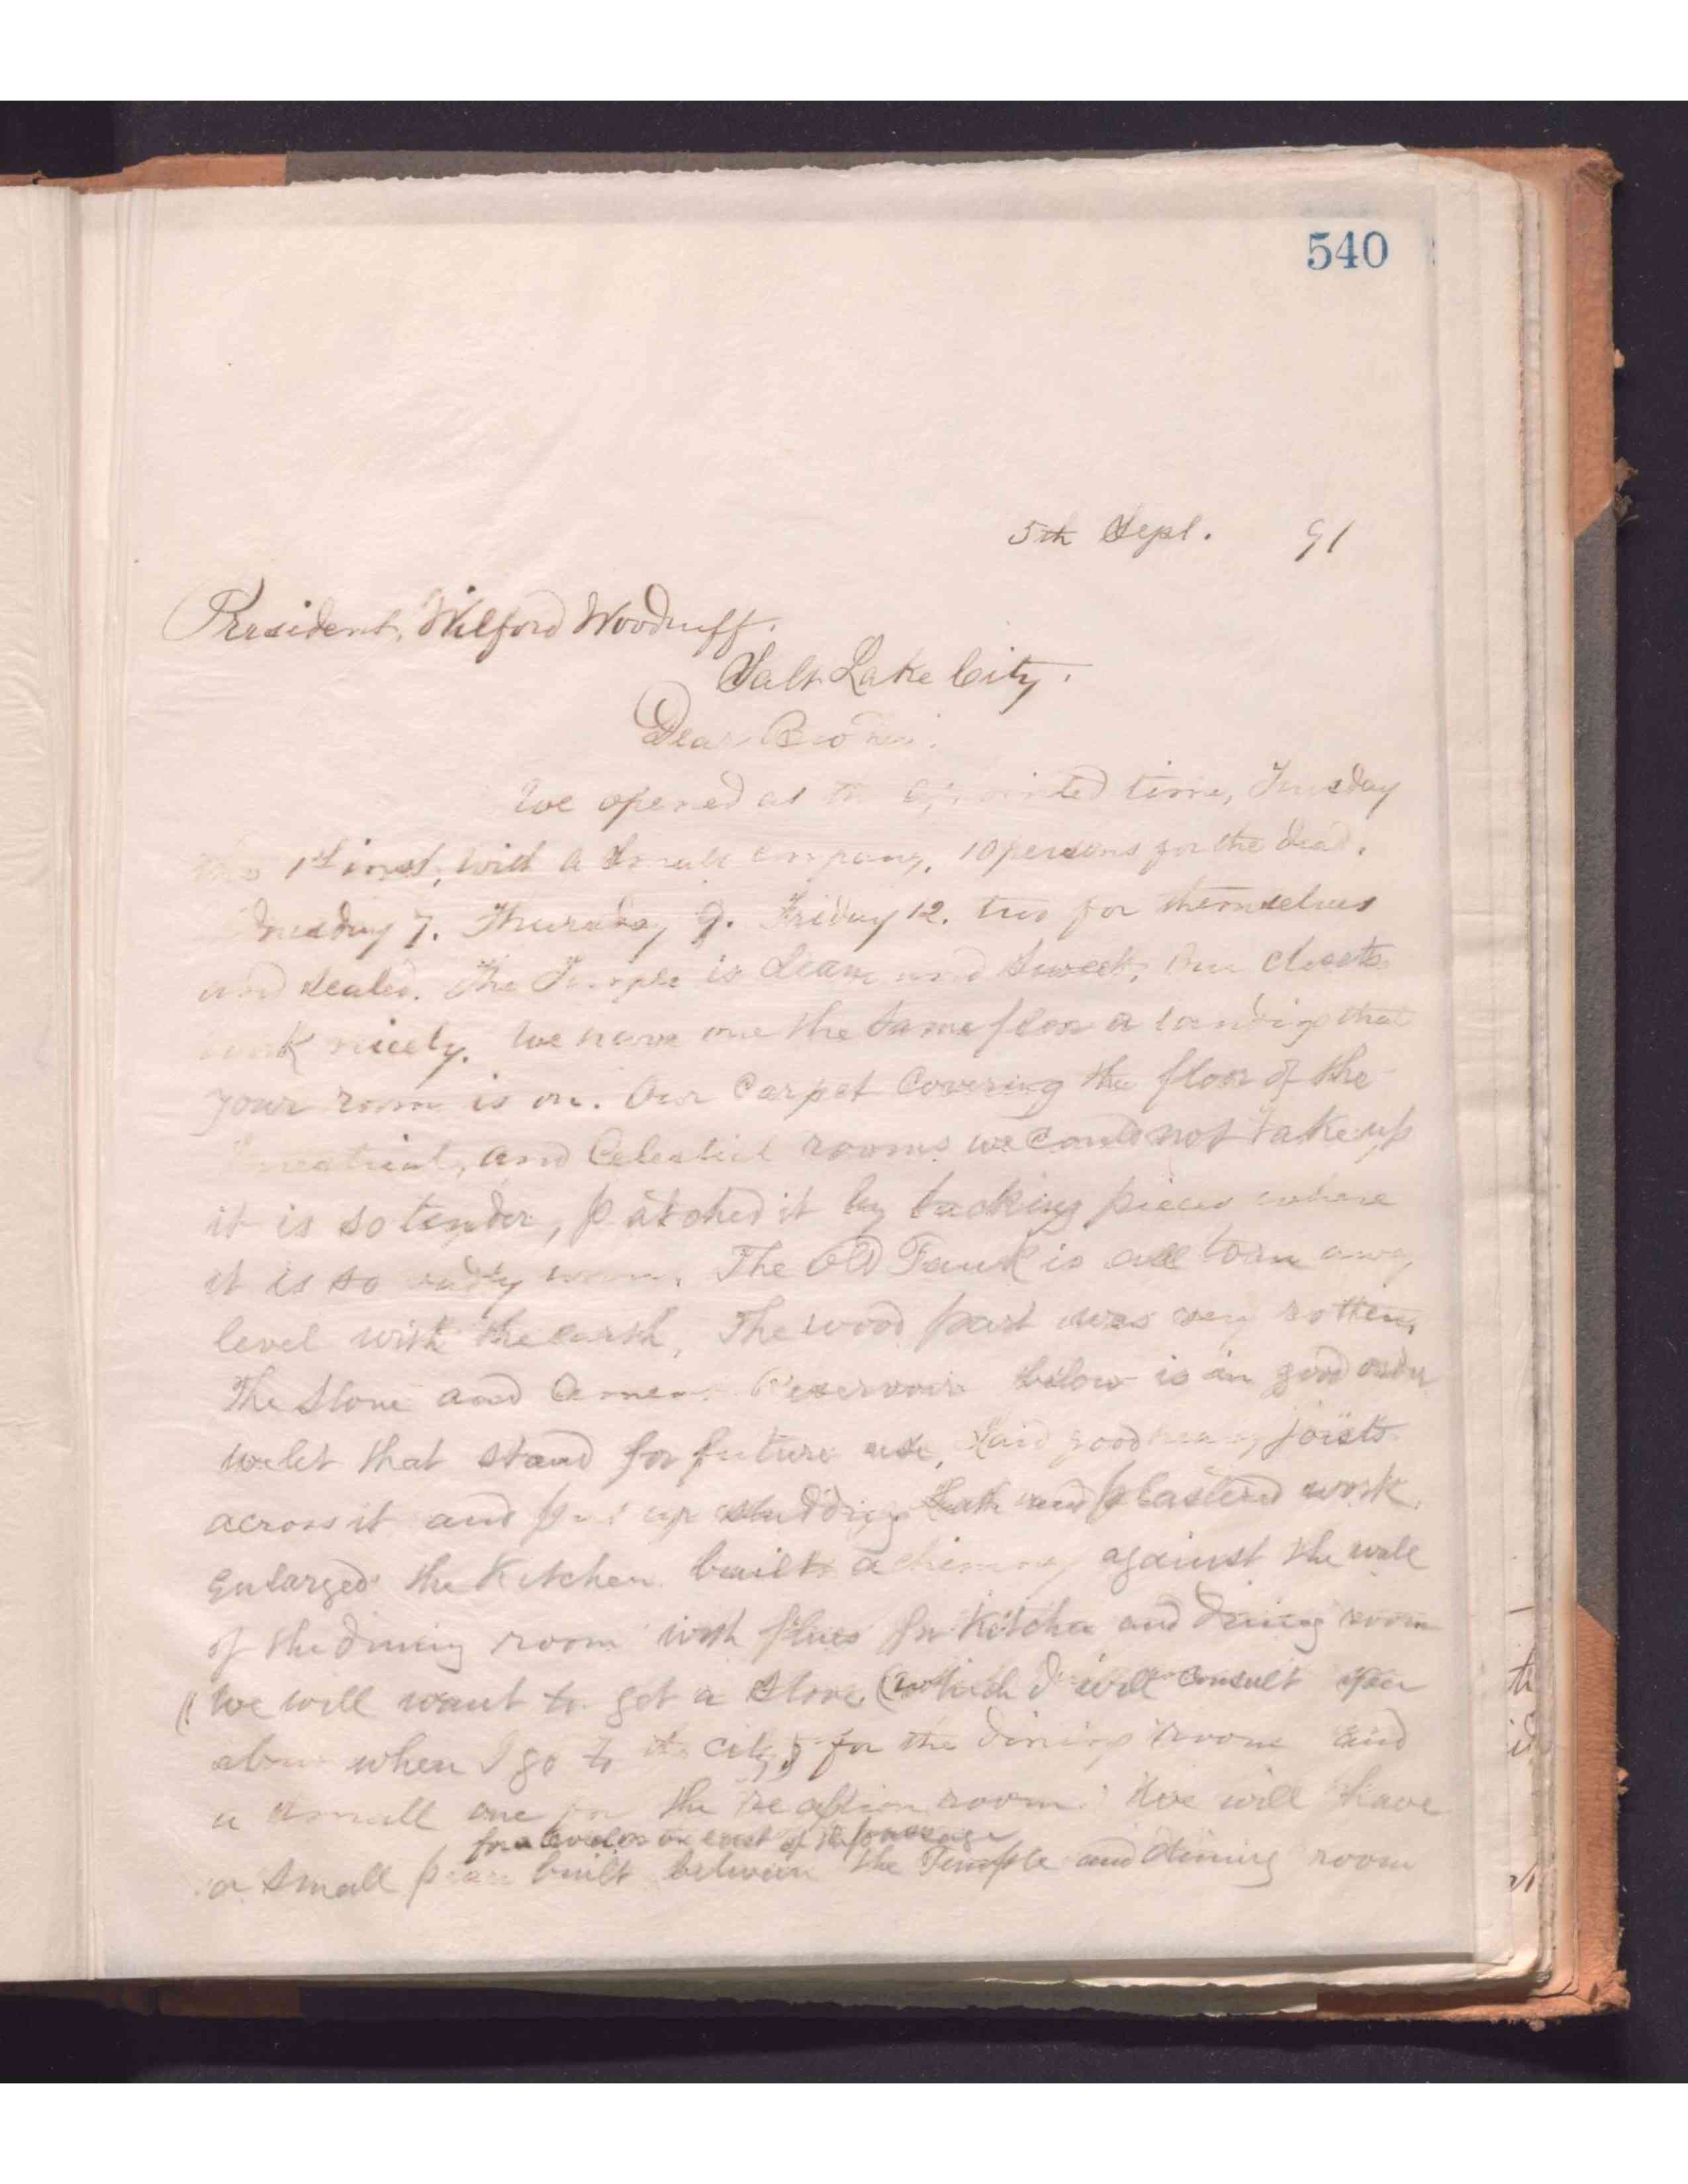 540
5th Sept. 91
President, Wilford Woodruff.
Salt Lake City.
Dear Brother.
We opened at the appointed time, Tuesday
1st inst, with a small company, 10 persons for the dead.
7. Thursday 9. Friday 12. two for themselves
and sealed. The Temple is clean and sweet, Our closets
work nicely. We have one the same floor a landing that
your room is on. Our Carpet Covering the floor of the
and Celestial rooms we could not take up
it is so tender, patched it by tacking pieces where
it is so worn. The Old Tank is all torn away
level with the earth, The wood part was very rotten,
The Stone and Cement Reservoir below is in good order
we let that stand for future use, Laid good heavy joists
across it and put up studding Lath and plastered work.
Enlarged the Kitchen built a chimney against the wall
of the dining room with flues for Kitchen and dining room
We will want to get a stove (which I will consult you
about when I go to the city) for the dining room and
a small one for the reception room. We will have
for a on east of the passage
a small built between the Temple and dining room